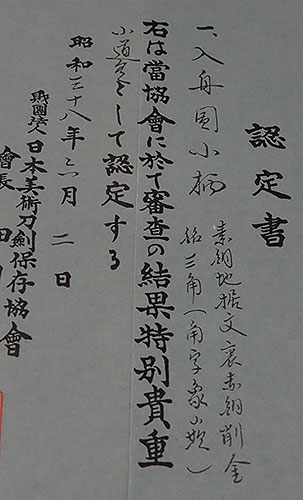 認定書
一、入舟圖小柄
素銅地据文裏赤銅削金
銘三角(角字象小
右は當協會に於て審査の結果特別貴重
小道具として認定する
昭和三十八年六月二日
財團法人日本美術刀劍保存協會
會長